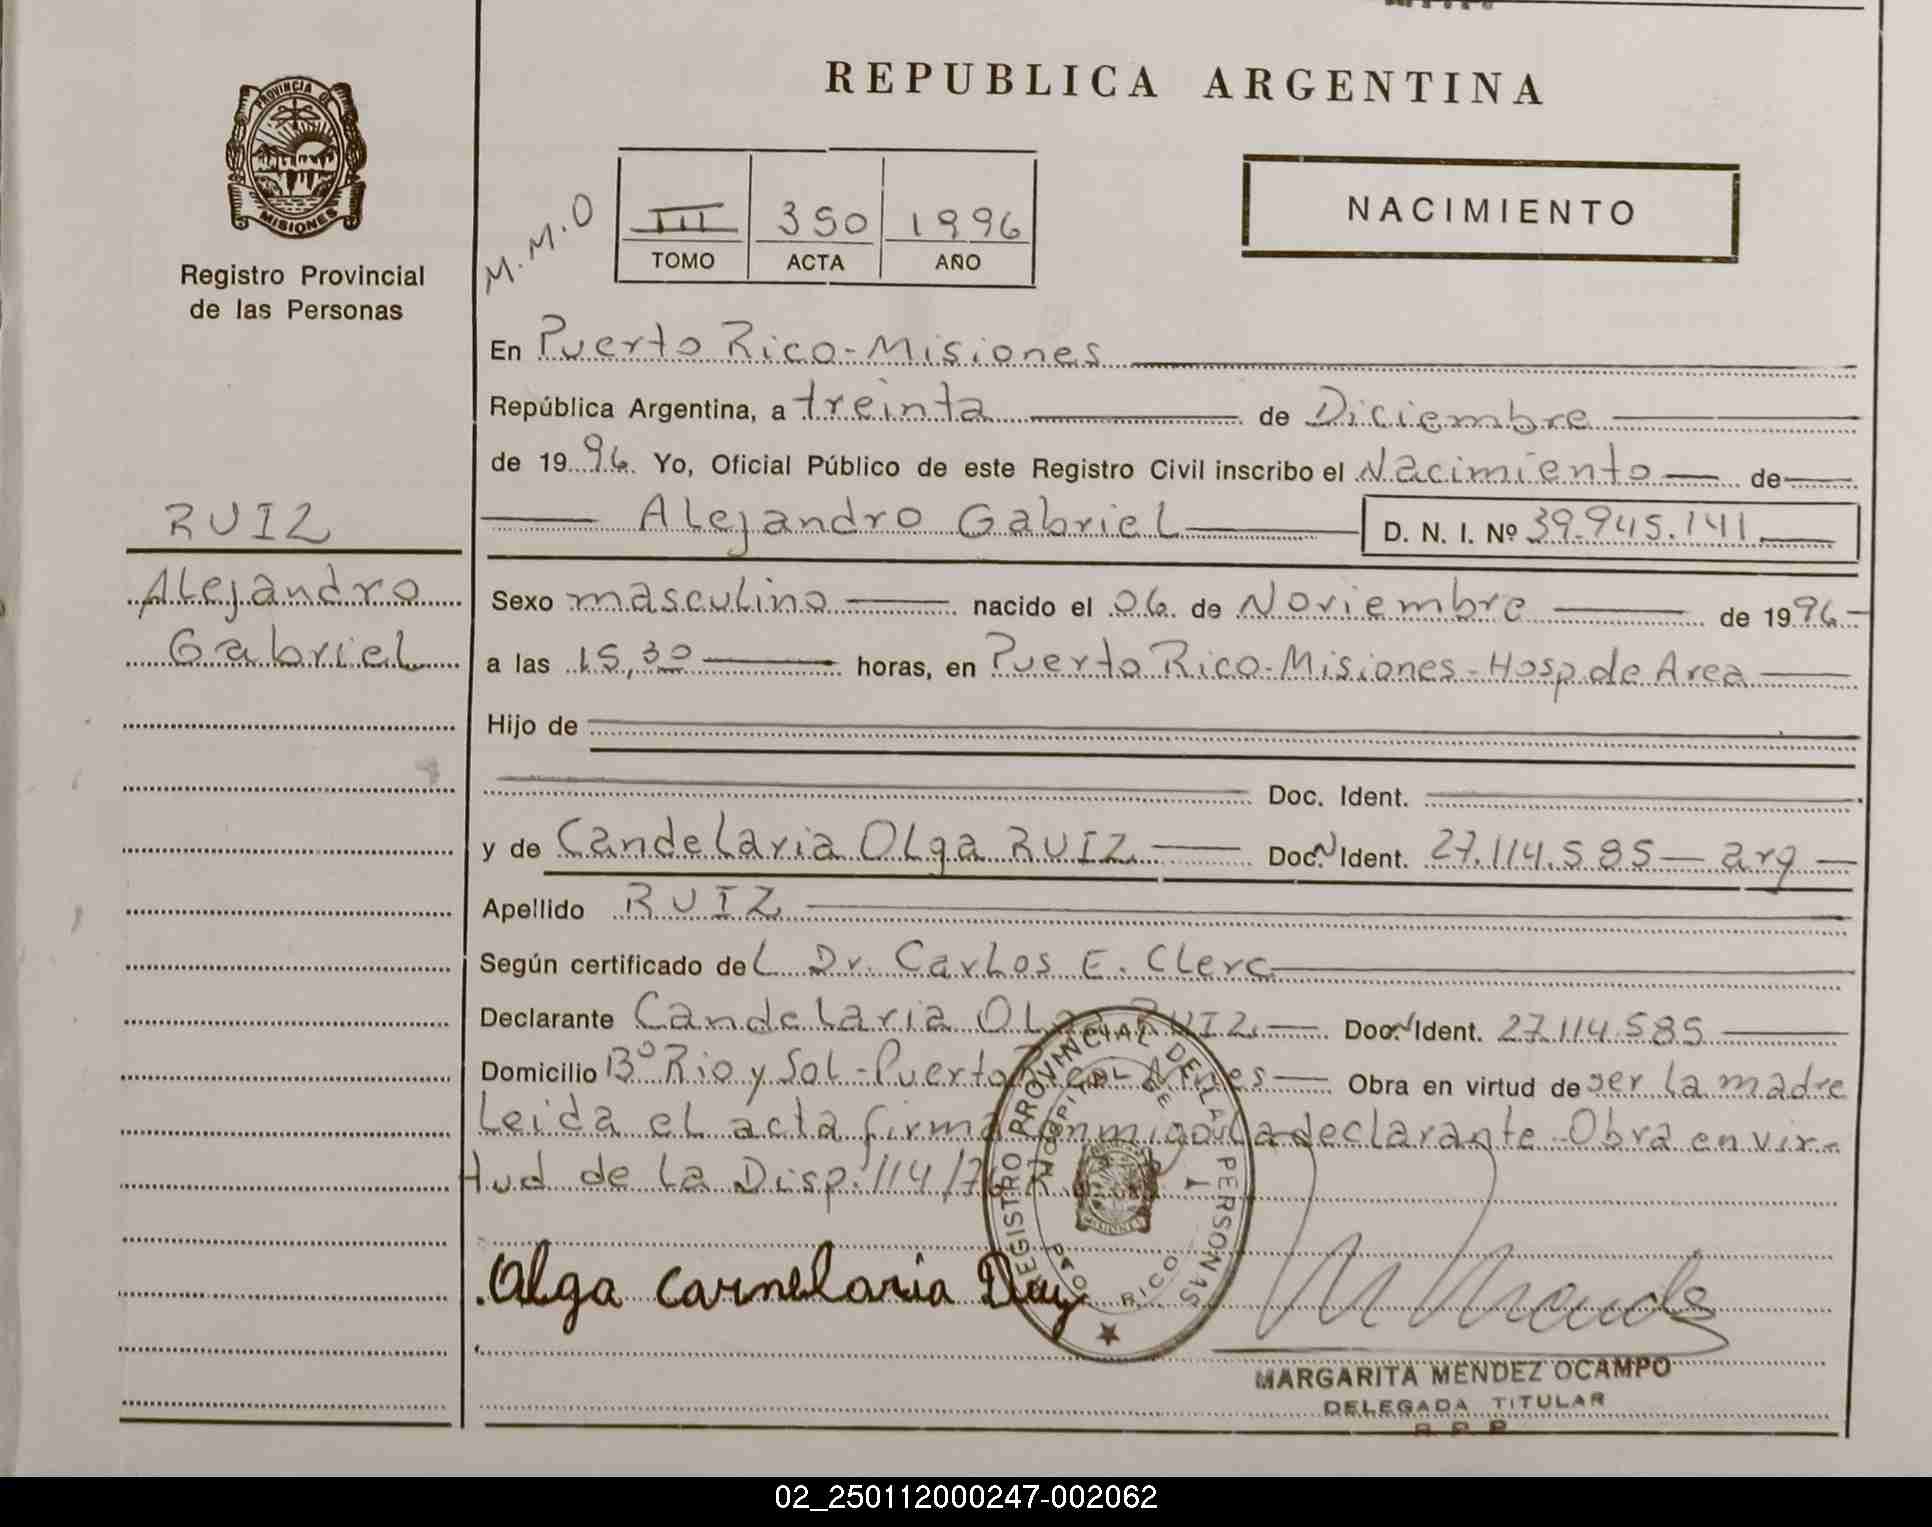 REPUBLICA ARGENTINA
PROVINCIA DE
MISIONES
Registro Provincial
de las Personas
M.M.O
III 350 1996
TOMO ACTA AÑO
NACIMIENTO
En Puerto Rico-Misiones
República Argentina, a treinta de Diciembre
de 1996. Yo, Oficial Público de este Registro Civil inscribo el Nacimiento de
RUIZ
Alejandro Gabriel D. N. I. Nº 39.945.141
Alejandro
Sexo masculino nacido el 06 de Noviembre de 1996
Gabriel
a las 15,30 horas, en Puerto Rico-Misiones-Hosp de Area
Hijo de
Doc. Ident.
y de Candelaria Olga RUIZ Doc. N Ident. 27.114.585 - arg
Apellido RUIZ
Según certificado del Dr. Carlos E. Clerc
Declarante Candelaria Olga RUIZ Doc. N Ident. 27.114.585
Domicilio Bº Rio y Sol - Puerto Rico Mnes Obra en virtud de ser la madre
Leida el acta firma conmigo la declarante - Obra en vir-
tud de la Disp. 114/76
REGISTRO PROVINCIAL DE LAS PERSONAS
HOSPITAL DE
PTO RICO
Olga Carnelaria
MARGARITA MENDEZ OCAMPO
DELEGADA TITULAR
R. P. P.
02_250112000247-002062